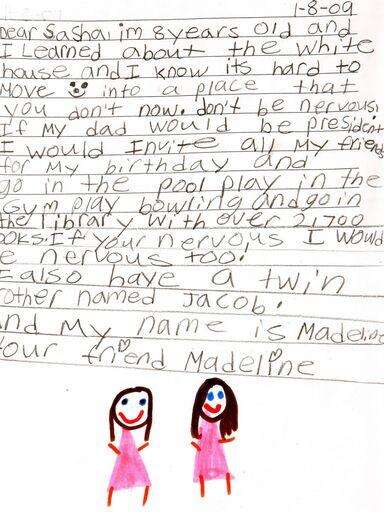 1-8-09
Dear Sasha, im 8 years old and
I Learned about the white
house and I know its hard to
Move into a place that
you don't now. don't be nervous.
If My dad would be president
I would Invite all My friends
for My birthday and
go in the pool play in the
Gym play bowling and go in
the library with over 2,700
ooks. If your nervous I would
e nervous too.
I also have a twin
rother named Jacob.
And My name is Madeline
Your friend Madeline